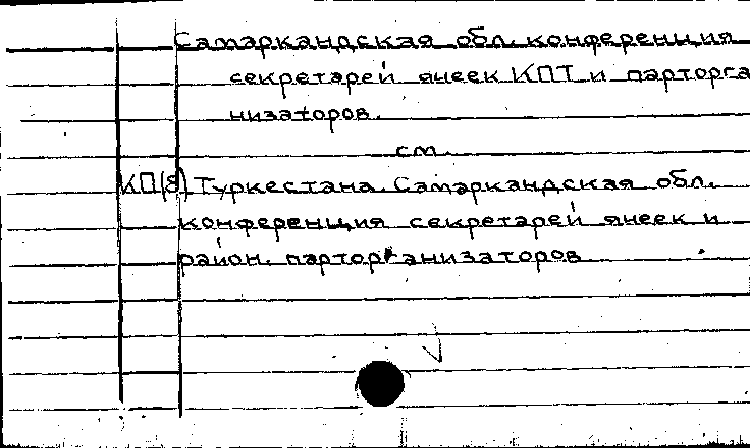 Самаркандская обл. конференция
секретарей ячеек КПТ и парторга
низаторов.
см.
КП(б) Туркестана. Самаркандская обл.
конференция секретарей ячеек и
район. парторганизаторов